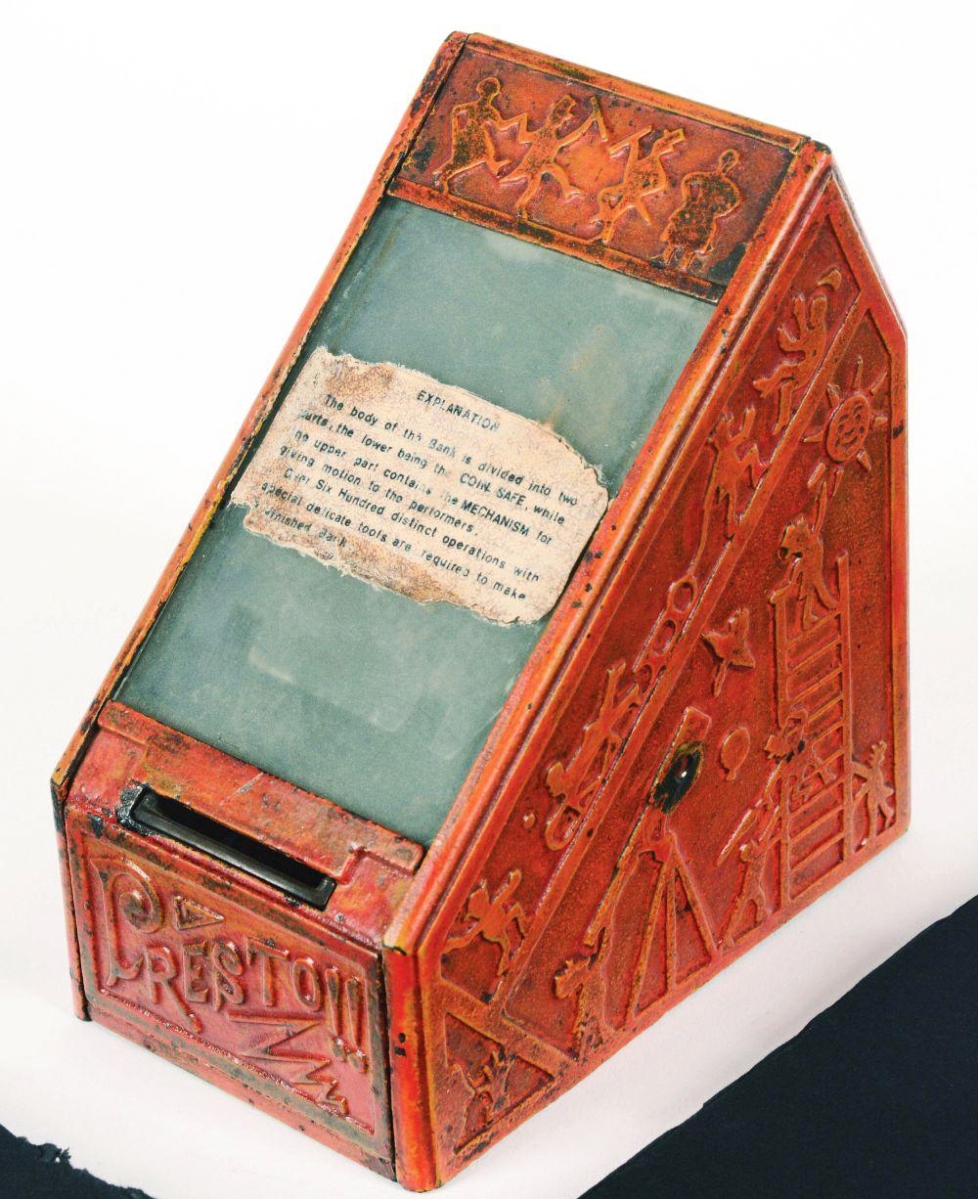 EXPLANATION
The body of the Bank is divided into two
parts, the lower being the COIN SAFE, while
the upper part contains the MECHANISM for
giving motion to the performers.
Over Six Hundred distinct operations with
special delicate tools are required to make
finished Bank
PRESTO!!